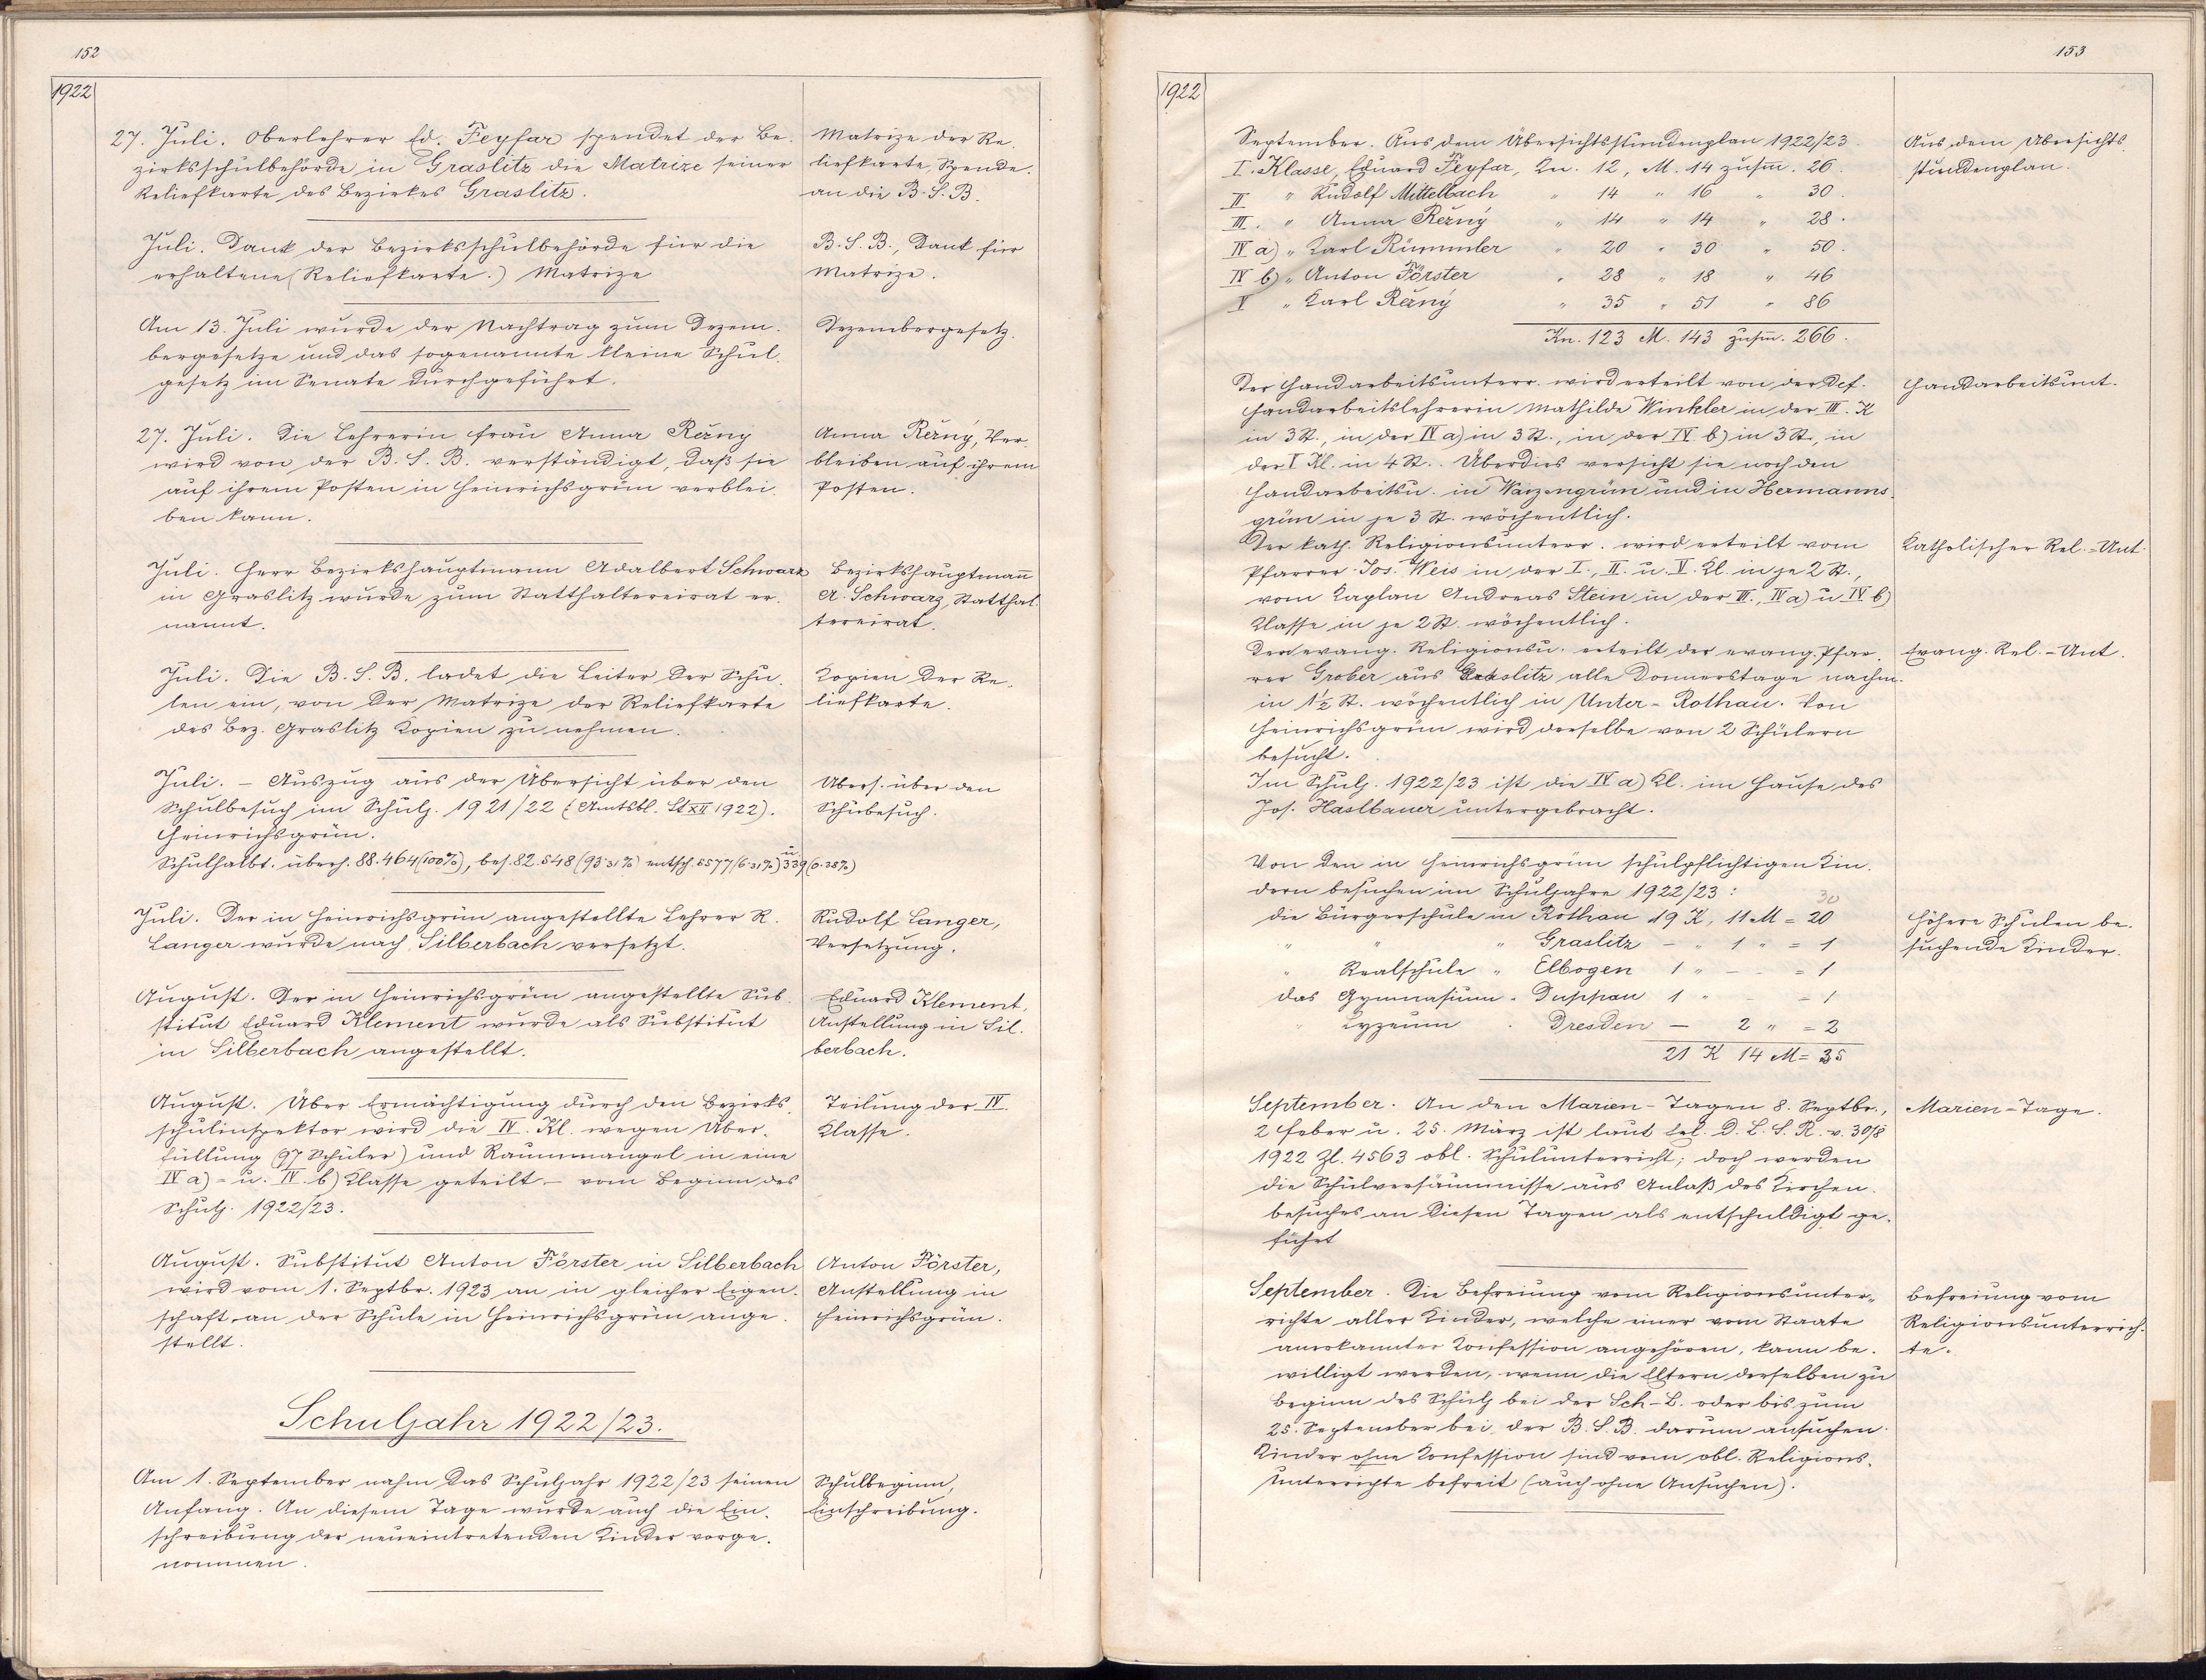 152
1922
27. Juli. Oberlehrer Ed. Feyfar spendet der Be-
zirksschulbehörde in Graslitz die Matrize seiner
Reliefkarte des Bezirkes Graslitz.
Matrize der Re-
liefkarte, Spende.
an die B. S. B.
Juli. Dank der Bezirksschulbehörde für die
erhaltene (Reliefkarte.) Matrize
B. S. B., Dank für
Matrize.
Am 13. Juli wurde der Nachtrag zum Dezem-
bergesetze und das sogenannte kleine Schul-
gesetz im Senate durchgeführt.
Dezembergesetz.
27. Juli. Die Lehrerin Frau Anna Rězny
wird von der B. S. B. verständigt, daß sie
auf ihrem Posten in Heinrichsgrün verblei-
ben kann.
Anna Rězný, Ver-
bleiben auf ihrem
Posten.
Juli. Herr Bezirkshauptmann Adalbert Schwarz
in Graslitz wurde zum Statthaltereirat er-
nannt.
Bezirkshauptmañ
A. Schwarz, Statthal-
tereirat.
Juli. Die B. S. B. ladet die Leiter der Schu-
len ein, von der Matrize der Reliefkarte
des Bez. Graslitz Kopien zu nehmen.
Kopien der Re-
liefkarte.
Juli. – Auszug aus der Übersicht über den
Schulbesuch im Schulj. 1921/22 (Amtsbl. St XII 1922).
Heinrichsgrün.
Schulhalbt. überh. 88.464 (100%), bes. 82.548 (93·31%) entsch. 5577 (6·31%) u. 339 (0·38%)
Übers. über den
Schubesuch.
Juli. Der in Heinrichsgrün angestellte Lehrer R.
Langer wurde nach Silberbach versetzt.
Rudolf Langer,
Versetzung.
August. Der in Heinrichsgrün angestellte Sub-
stitut Eduard Klement wurde als Substitut
in Silberbach angestellt.
Eduard Klement,
Anstellung in Sil-
berbach.
August. Über Ermächtigung durch den Bezirks-
schulinspektor wird die IV. Kl. wegen Über-
füllung (97 Schüler) und Raummangel in eine
IV a) - u. IV. b) Klasse geteilt – vom Beginn des
Schulj. 1922/23.
Teilung der IV.
Klasse.
August. Substitut Anton Förster in Silberbach
wird vom 1. Septbr. 1923 an in gleicher Eigen-
schaft an der Schule in Heinrichsgrün ange-
stellt.
Anton Förster,
Anstellung in
Heinrichsgrün.
Schuljahr 1922/23.
Am 1. September nahm das Schuljahr 1922/23 seinen
Anfang. An diesem Tage wurde auch die Ein-
schreibung der neueintretenden Kinder vorge-
nommen.
Schulbeginn,
Einschreibung.
153
1922
September. Aus dem Übersichtsstundenplan 1922/23.
I. Klasse, Eduard Feyfar, Kn. 12, M. 14 zusm̄. 26.
II " Rudolf Mittelbach " 14 " 16 " 30.
III. " Anna Rězný " 14 " 14 " 28.
IV a) " Karl Rümmler " 20 " 30 " 50.
IV b) " Anton Förster " 28 " 18 " 46
V " Karl Rězný " 35 " 51 " 86
Kn. 123 M. 143 zusm̄. 266.
Aus dem Übersichts-
stundenplan.
Der Handarbeitsunterr. wird erteilt von der Def.
Handarbeitslehrerin Mathilde Winkler in der III. K
in 3 St., in der IV a) in 3 St., in der IV. b) in 3 St., in
der V Kl. in 4 St. Überdies versieht sie noch den
Handarbeitsu. in Warzengrün und in Hermanns-
grün in je 3 St. wöchentlich.
Handarbeitsunt.
Der kath. Religionsunterr. wird erteilt vom
Pfarrer Jos. Weis in der I., II. u. V. Kl. in je 2 St.,
vom Kaplan Andreas Stein in der III., IV a) u IV b)
Klasse in je 2 St. wöchentlich.
Katholischer Rel.-Unt.
Den evang. Religionsu. erteilt der evang. Pfar-
rer Grober aus Graslitz alle Donnerstage nachm.
in 1½ St. wöchentlich in Unter-Rothau. Von
Heinrichsgrün wird derselbe von 2 Schülern
besucht.
Evang. Rel.-Unt.
Im Schulj. 1922/23 ist die IV a) Kl. im Hause des
Jos. Haslbauer untergebracht.
Von den in Heinrichsgrün schulpflichtigen Kin-
dern besuchen im Schuljahre 1922/23:
30
die Bürgerschule in Rothau 19 K, 11 M = 20
" " " Graslitz – " 1 " = 1
" Realschule " Elbogen 1 " – = 1
das Gymnasium " Duppau 1 " - = 1
" Lyzeum " Dresden – 2 " = 2
21 K 14 M = 35
Höhere Schulen be-
suchende Kinder.
September. An den Marien-Tagen 8. Septbr.,
2 Feber u. 25. März ist laut Erl. D. L. S. R. v. 30/8
1922 Zl. 4563 obl. Schulunterricht; doch werden
die Schulversäumnisse aus Anlaß des Kirchen-
besuches an diesen Tagen als entschuldigt ge-
führt
Marien-Tage.
September. Die Befreiung vom Religionsunter-
richte aller Kinder, welche einer vom Staate
anerkannter Konfession angehören, kann be-
willigt werden, wenn die Eltern derselben zu
Beginn des Schulj bei der Sch-L. oder bis zum
25. September bei der B. S. B. darum ansuchen.
Kinder ohne Konfession sind vom obl. Religions-
unterrichte befreit (auch ohne Ansuchen).
Befreiung vom
Religionsunterrich-
te.